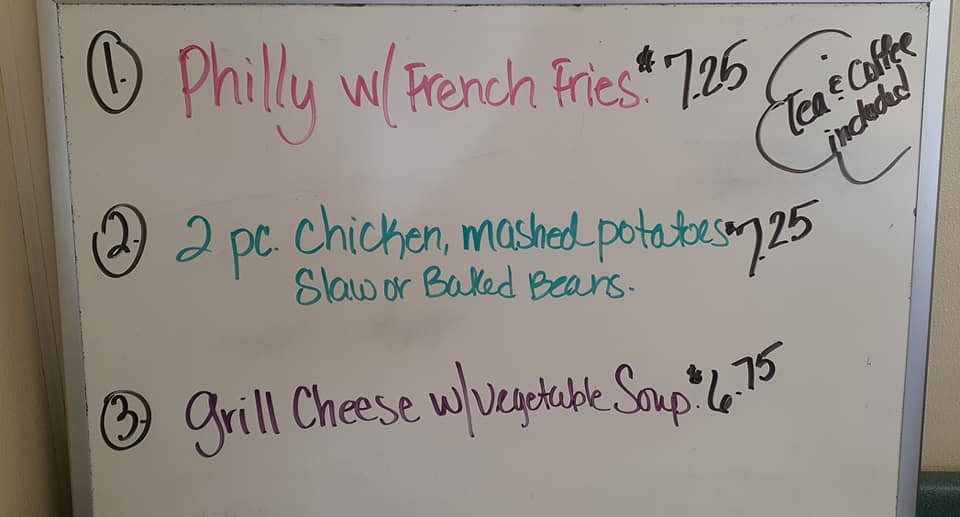 1. Philly w/ French Fries. $7.25
Tea & Coffee
included
2. 2 pc. Chicken, mashed potatoes $7.25
Slaw or Baked Beans.
3. grill Cheese w/ Vegetable Soup. $6.75